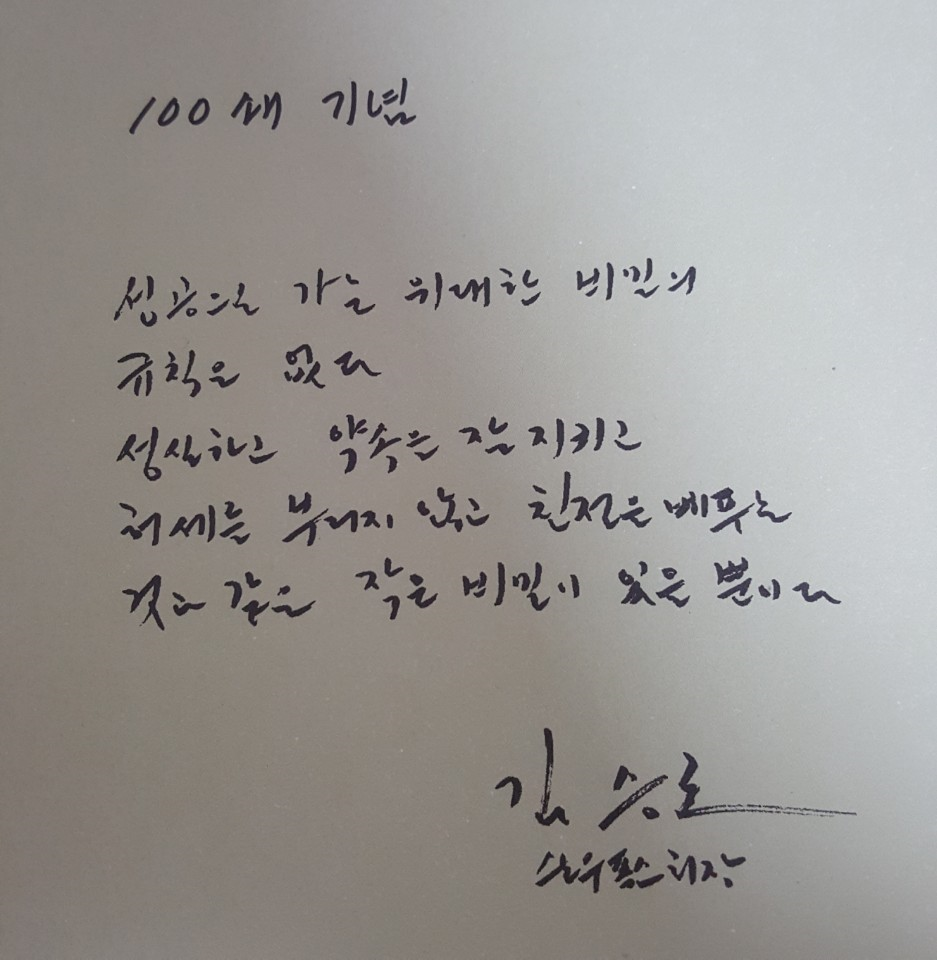 100쇄 기념
성공으로 가는 위대한 비밀의
규칙은 없다
성실하고 약속을 잘 지키고
허세를 부리지 않고 친절을 베푸는
것과 같은 작은 비밀이 있을 뿐이다
김승호
스노우폭스 회장